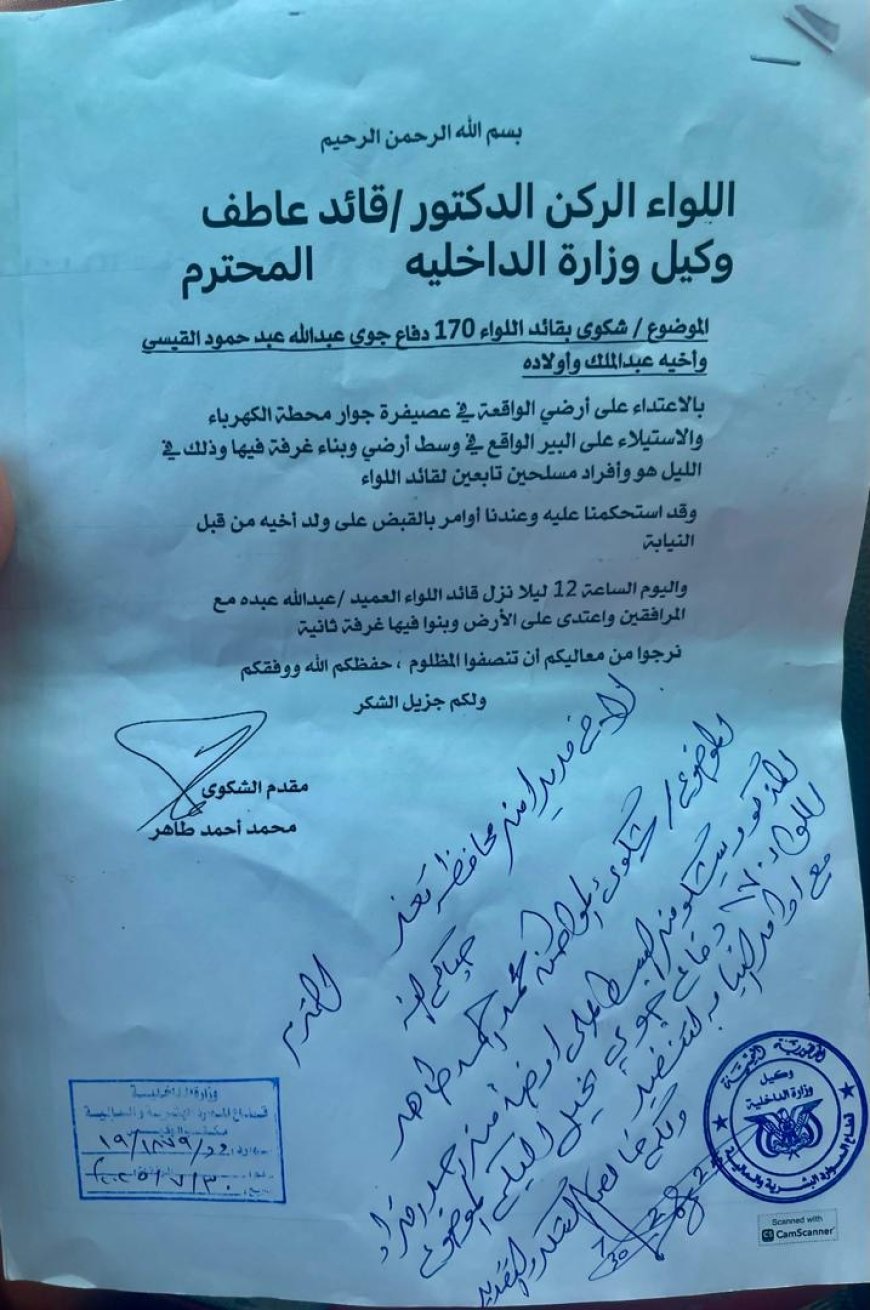 بسم الله الرحمن الرحيم
اللواء الركن الدكتور /قائد عاطف
وكيل وزارة الداخليه المحترم
الموضوع / شكوى بقائد اللواء 170 دفاع جوى عبدالله عبد حمود القيسي
وأخيه عبدالملك وأولاده
بالاعتداء على أرضي الواقعة في عصيفرة جوار محطة الكهرباء
والاستيلاء على البير الواقع في وسط أرضي وبناء غرفة فيها وذلك في
الليل هو وأفراد مسلحين تابعين لقائد اللواء
وقد استحكمنا عليه وعندنا أوامر بالقبض على ولد أخيه من قبل
النيابة
واليوم الساعة 12 ليلا نزل قائد اللواء العميد /عبدالله عبده مع
المرافقين واعتدى على الأرض وبنوا فيها غرفة ثانية
نرجوا من معاليكم أن تنصفوا المظلوم ، حفظكم الله ووفقكم
ولكم جزيل الشكر
مقدم الشكوى
محمد أحمد طاهر
الاخ مدير امن محافظة تعز المحترم
حياكم الله
الموضوع / شكوى المواطن محمد احمد طاهر
المذكور يشكو من البسط على ارضه من افراد
اللواء ١٧٠ دفاع جوي نحيل اليكم الموضوع
مع اوامر النيابه للتنفيذ
ولكم خالص الشكر والتقدير
وزارة الداخلية
قطاع الموارد البشرية والمالية
الجمهورية اليمنية
وكيل
وزارة الداخلية
قطاع الموارد البشرية والمالية
Scanned with
CS CamScanner